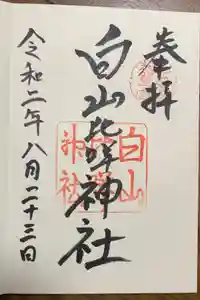 奉拝
白山比咩神社
令和二年八月二十三日
白山
神社